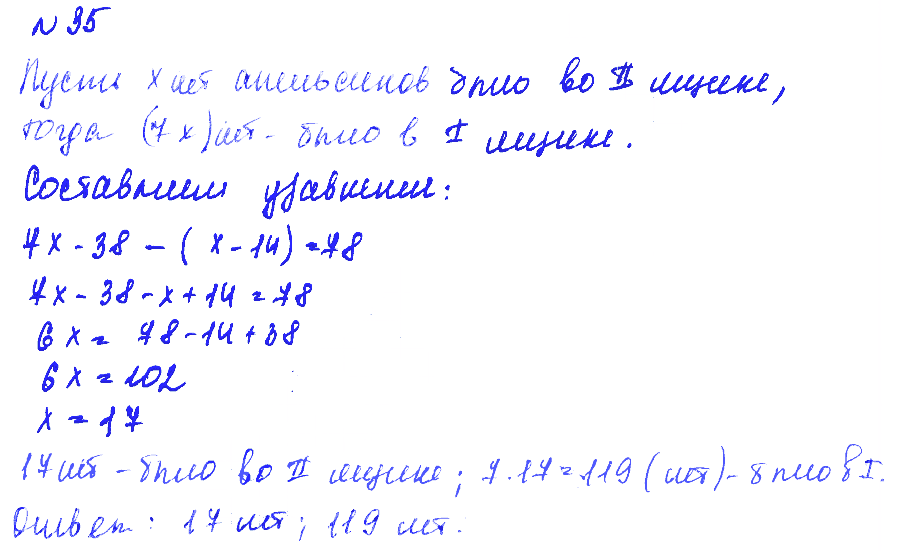 № 95
Пусть x шт апельсинов было во II ящике,
тогда (7x) шт - было в I ящике.
Составим уравнение:
7x - 38 - (x - 14) = 78
7x - 38 - x + 14 = 78
6x = 78 - 14 + 38
6x = 102
x = 17
17 шт - было во II ящике; 7·17 = 119 (шт) - было в I.
Ответ: 17 шт; 119 шт.